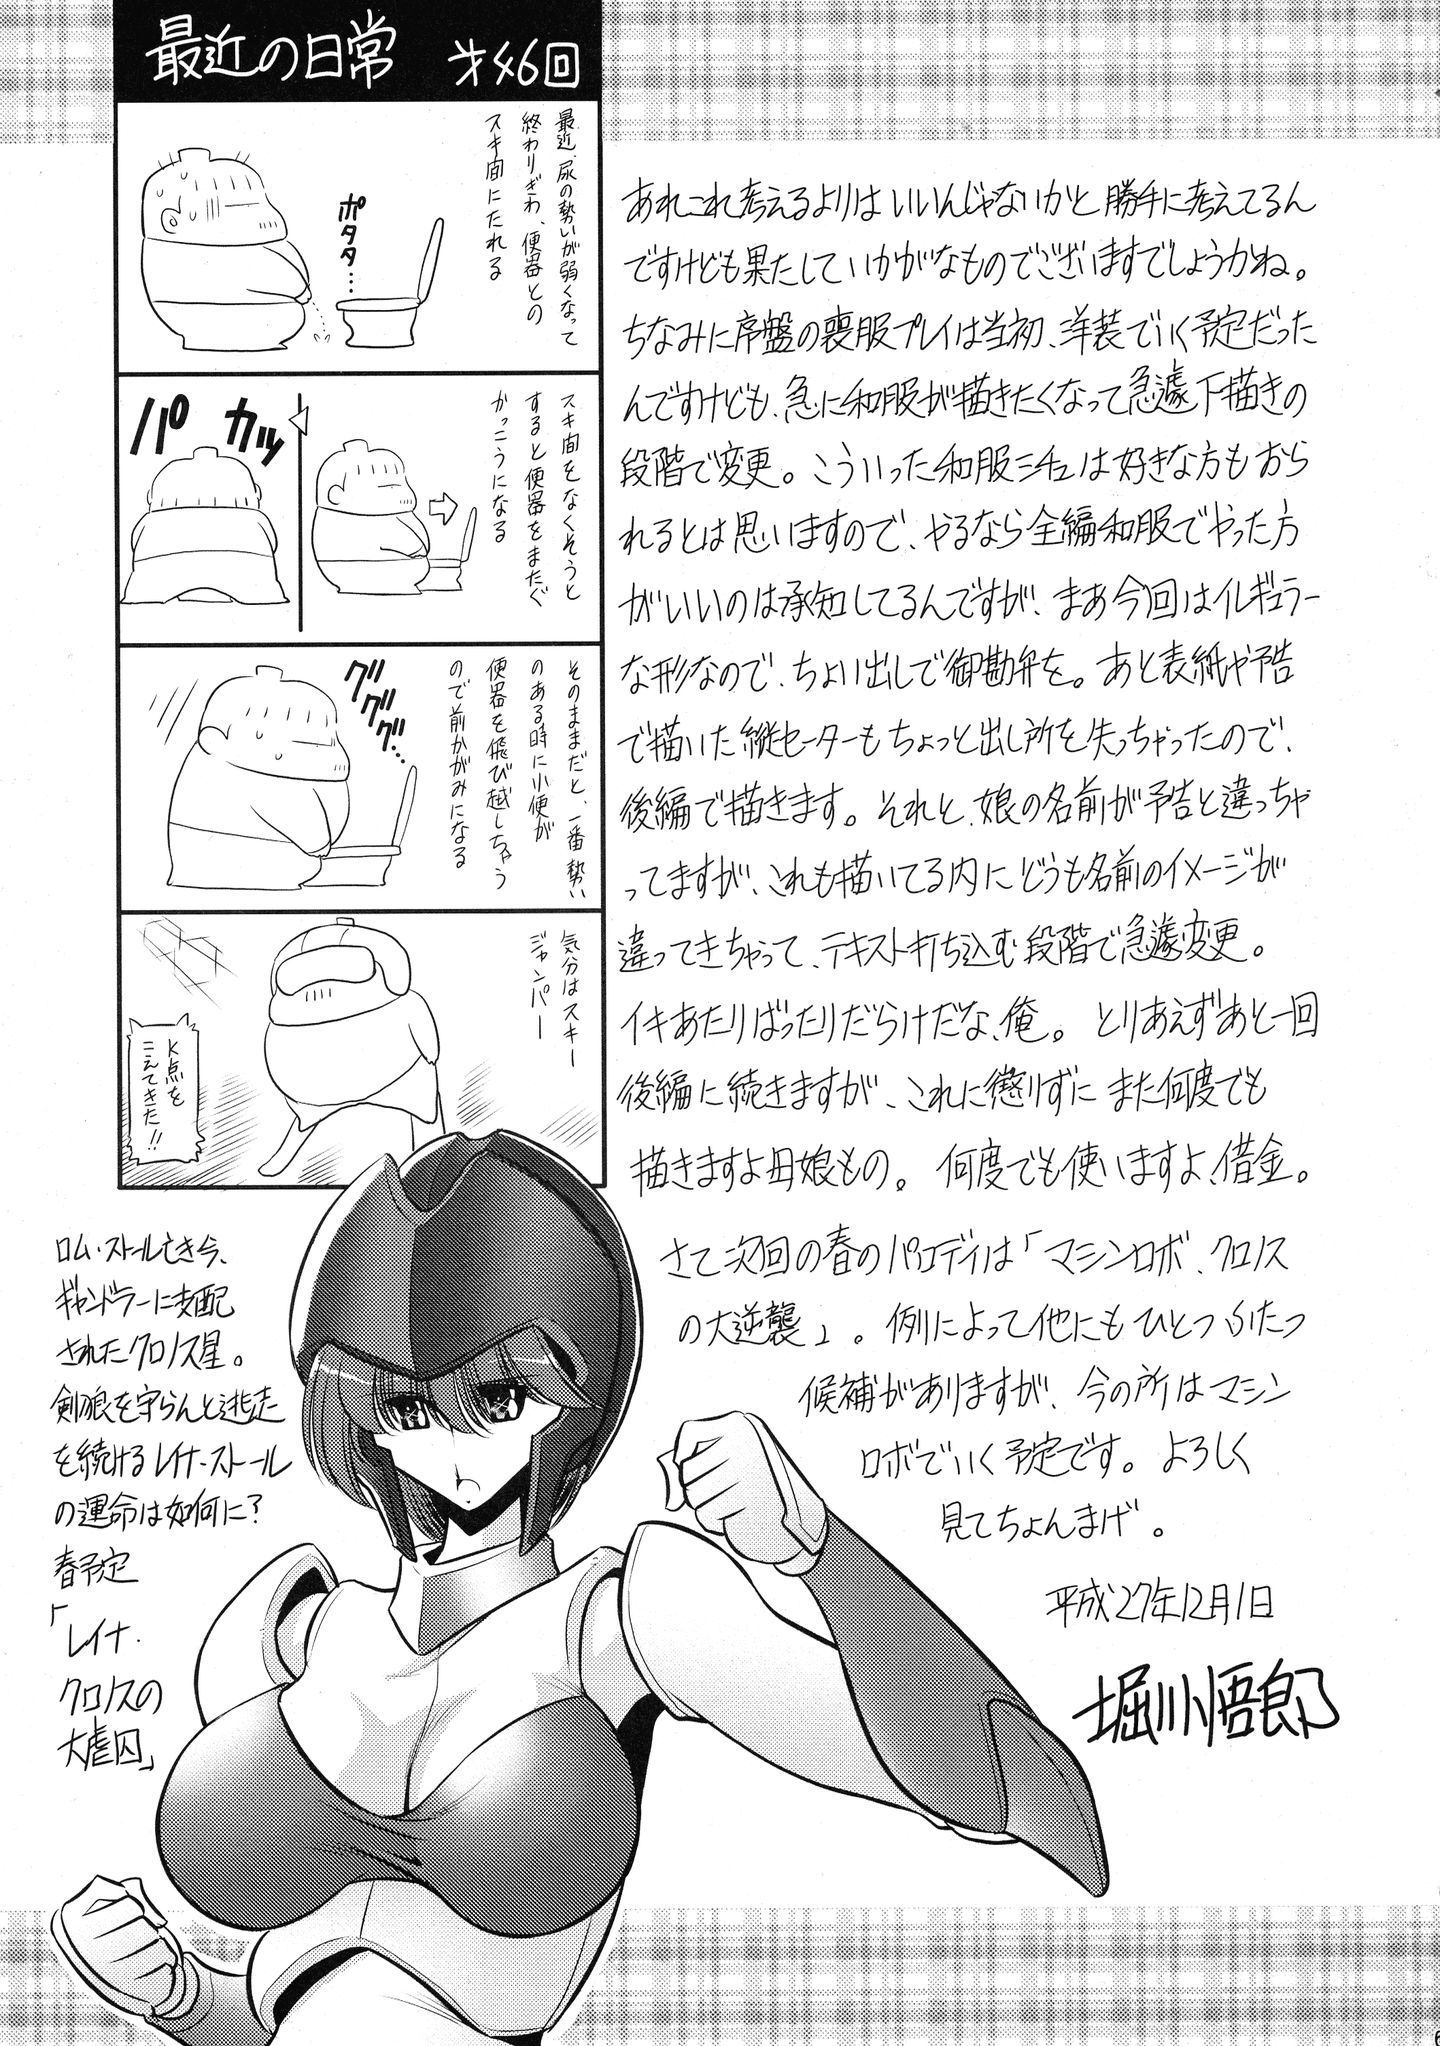 最近の日常 才46回
最近、尿の勢いが弱くなって
終わりぎわ、便器との
スキ間にたれる
ポタタタ…
スキ間をなくそうと
すると便器をまたぐ
かっこうになる
パカッ
そのままだと、一番勢い
のある時に小便が
便器を飛び越しちゃう
ので前かがみになる
グググッ…
気分はスキー
ジャンパー
K点を
こえてきた!!
あれこれ考えるよりはいいんじゃないかと勝手に考えてるん
ですけども果たしていかがなものでございますでしょうかね。
ちなみに序盤の喪服プレイは当初、洋装でいく予定だった
んですけども、急に和服が描きたくなって急遽下描きの
段階で変更。こういった和服シチュは好きな方もおら
れるとは思いますので、やるなら全編和服でやった方
がいいのは承知してるんですが、まあ今回はイレギュラー
な形なので、ちょい出しで御勘弁を。あと表紙や予告
で描いた縦セーターもちょっと出し所を失っちゃったので、
後編で描きます。それと、娘の名前が予告と違っちゃ
ってますが、これも描いてる内にどうも名前のイメージが
違ってきちゃって、テキスト打ち込む段階で急遽変更。
イキあたりばったりだらけだな、俺。とりあえずあと一回
後編に続きますが、これに懲りずにまた何度でも
描きますよ母娘もの。何度でも使いますよ、借金。
さて次回の春のパロディは「マシンロボ、クロノス
の大逆襲」。例によって他にもひとつふたつ
候補がありますが、今の所はマシン
ロボでいく予定です。よろしく
見てちょんまげ。
平成27年12月1日
堀川悟郎
ロム・ストール亡き今、
ギャンドラーに支配
されたクロノス星。
剣狼を守らんと逃走
を続けるレイナ・ストール
の運命は如何に?
春予定
「レイナ・
クロノスの
大虐囚」
6